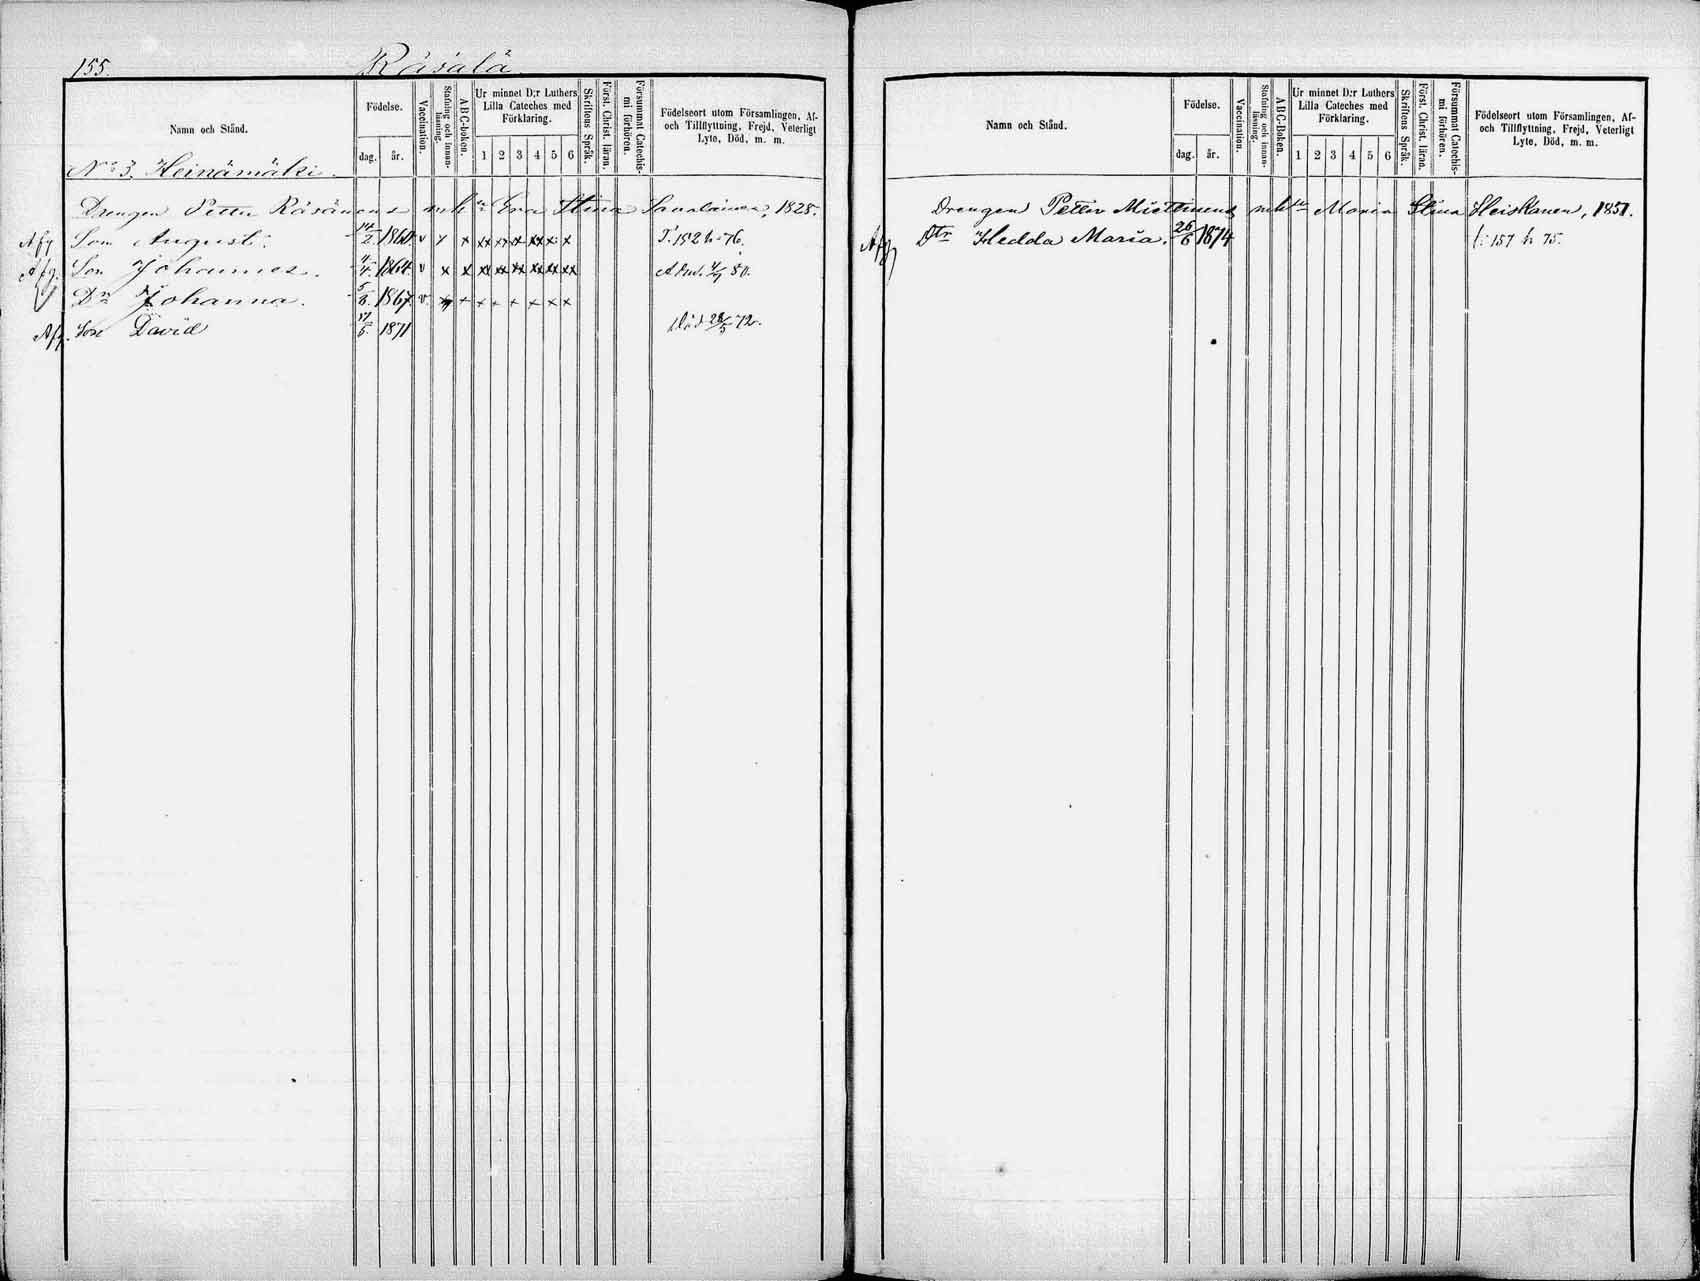 155. Räsälä
Namn och Stånd. Födelse. dag. år. Vaccination. Stafning och innanläsning. ABC-boken. Ur minnet D:r Luthers Lilla Cateches med Förklaring. 1 2 3 4 5 6 Skriftens Språk. Först. Christ. läran. Försummat Catechismi förhören. Födelseort utom Församlingen, Af- och Tillflyttning, Frejd, Veterligt Lyte, Död, m. m.
No 3. Heinämäki.
Drengen Petter Räsänens mh Eva Stina Savolainen, 1828.
Afg Son August. 14/2. 1860 v x x xx xx x xx x x T. 152 h -76.
Afg. Son Johannes. 4/4. 1864 v x x xx xx xx xx xx xx 4/9 80.
Dr Johanna. 5/8. 1867. v. x + x + + + x x
Afg. Son David 17/6. 1871 Död 28/5 72.
Namn och Stånd. Födelse. dag. år. Vaccination. Stafning och innanläsning. ABC-Boken. Ur minnet D:r Luthers Lilla Cateches med Förklaring. 1 2 3 4 5 6 Skriftens Språk. Först. Christ. läran. Försummat Catechismi förhören. Födelseort utom Församlingen, Af- och Tillflyttning, Frejd, Veterligt Lyte, Död, m. m.
Drengen Petter Miettinens mh Maria Stina Heiskanen, 1851.
Afg Dtr Hedda Maria. 26/6 1874 t: 157 h 75.